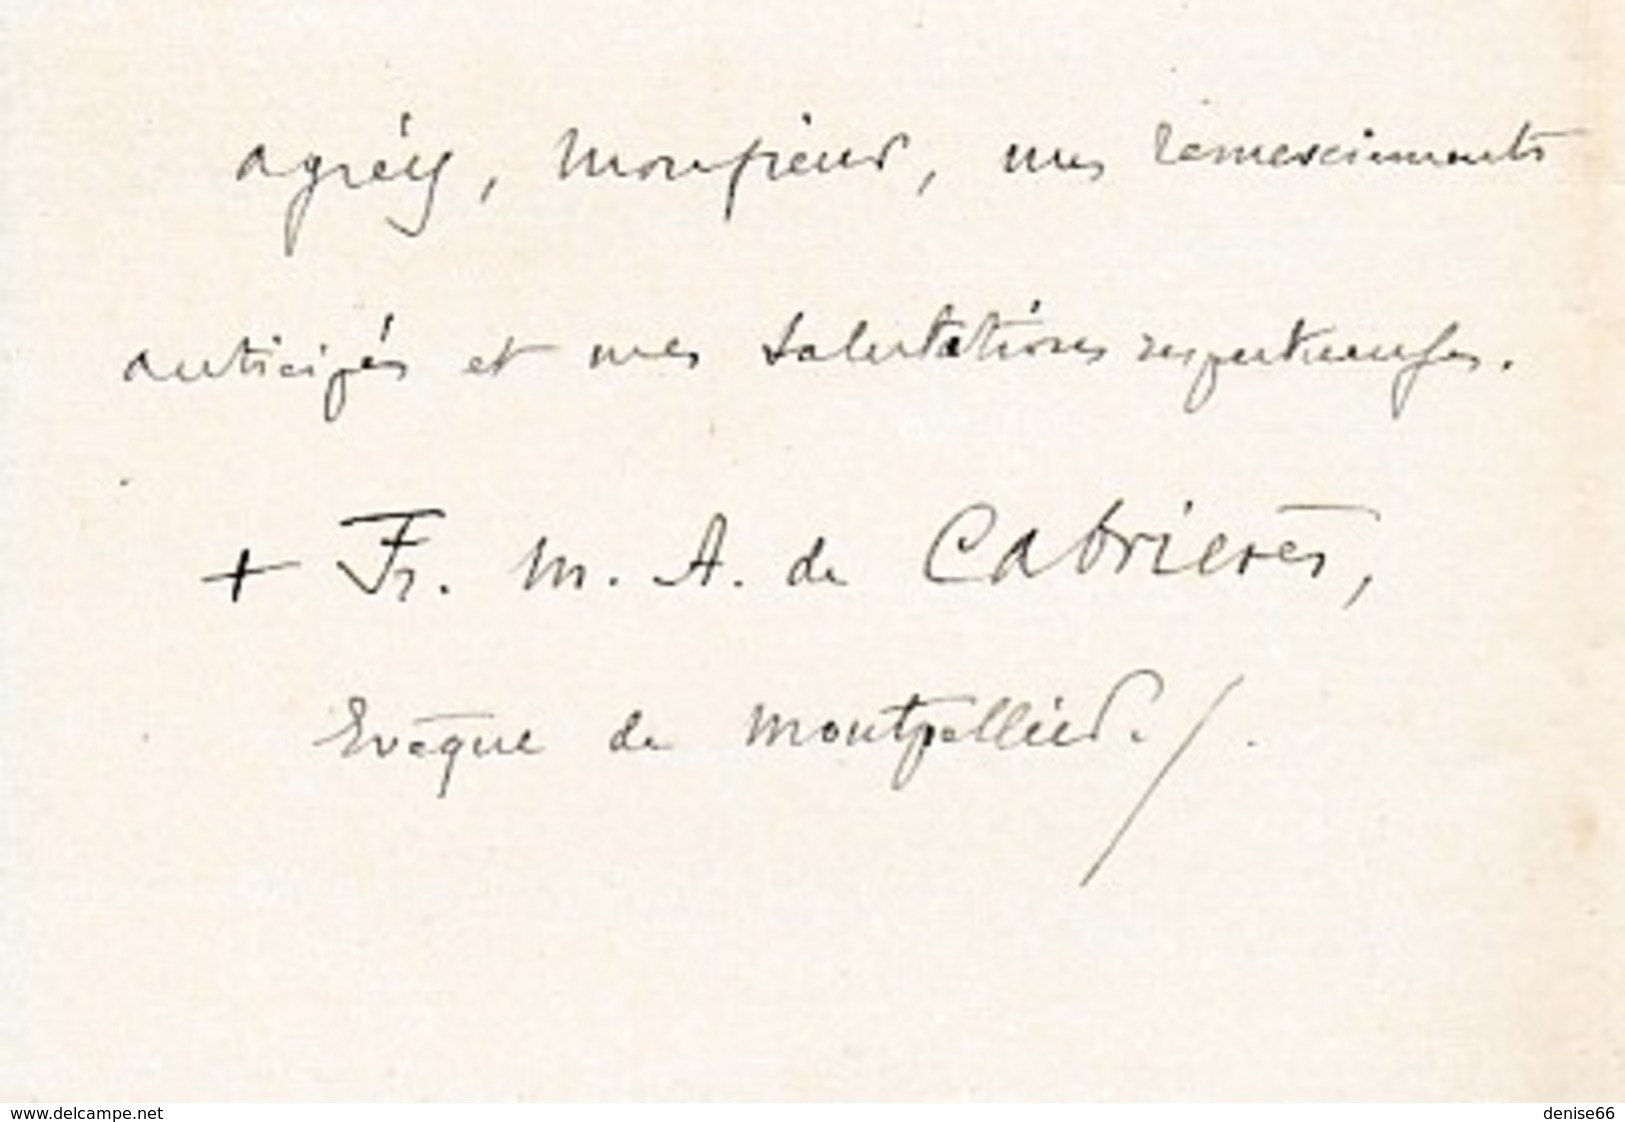 agréez, Monsieur, mes remerciements
anticipés et mes salutations respectueuses.
+ Fr. M. A. de Cabrières,
Evêque de Montpellier./.
www.delcampe.net
denise66